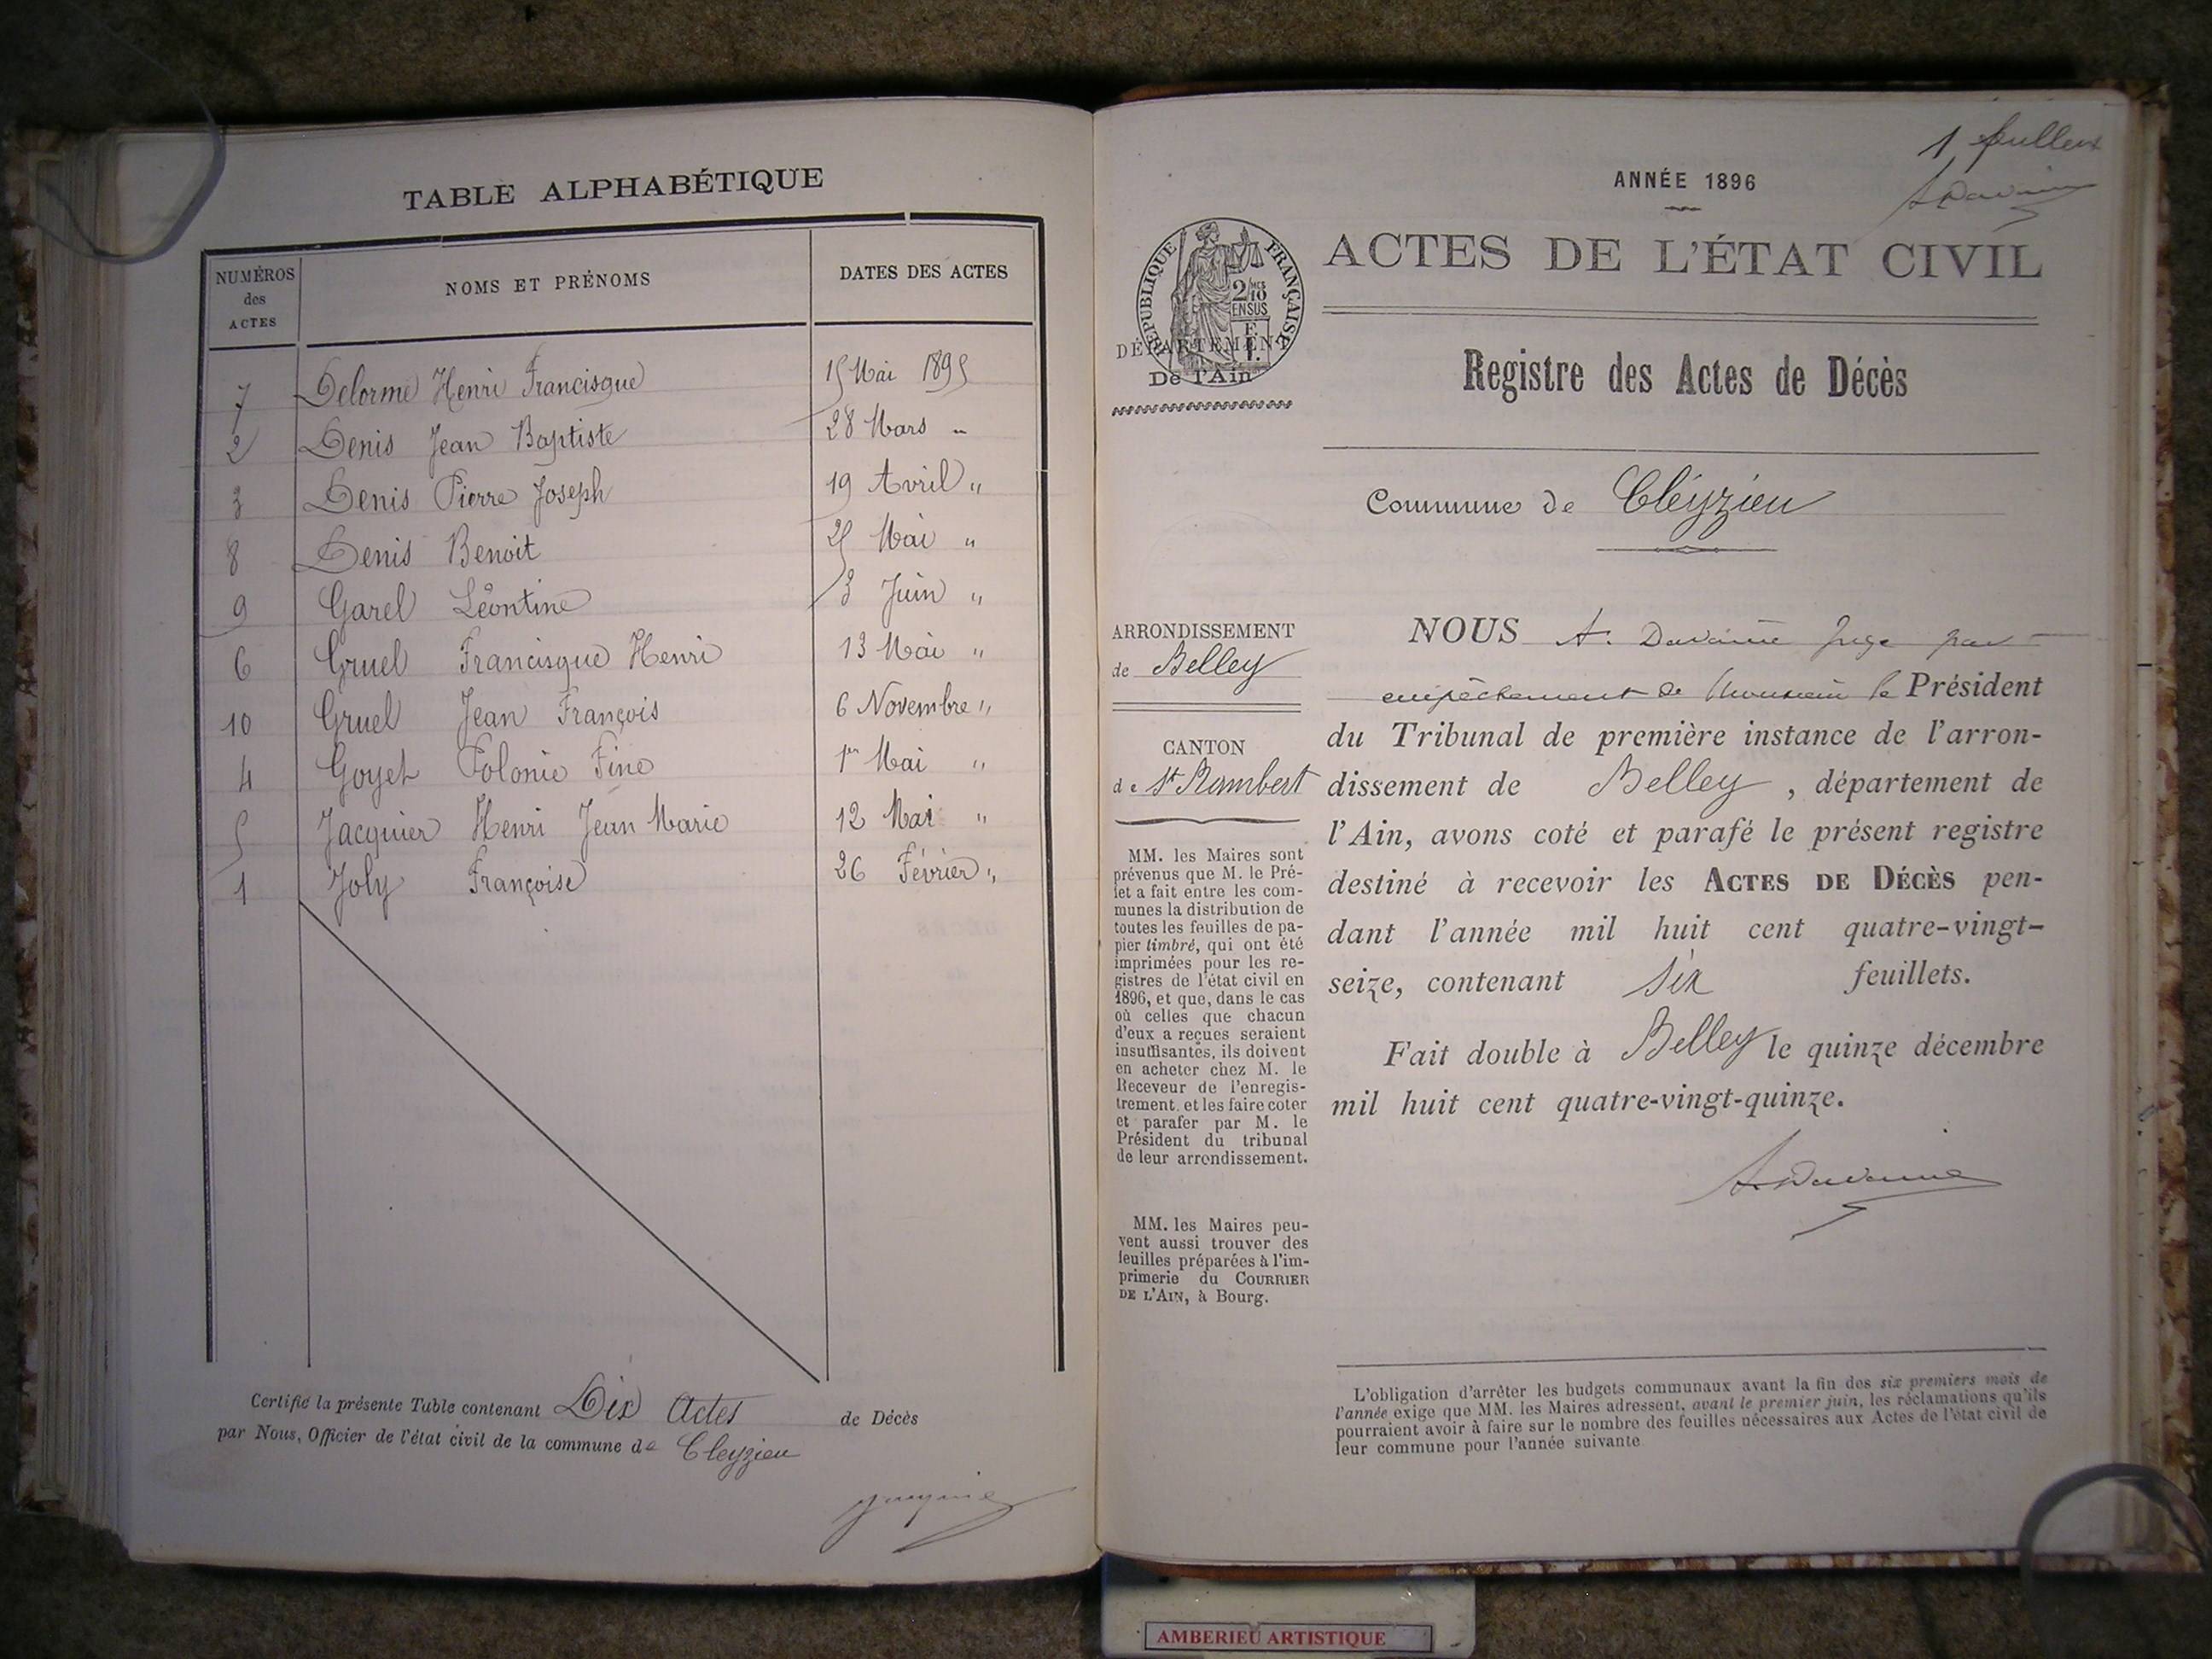 TABLE ALPHABÉTIQUE
NUMÉROS des ACTES NOMS ET PRÉNOMS DATES DES ACTES
7 Delorme Henri Francisque 15 Mai 1895
2 Denis Jean Baptiste 28 Mars "
3 Denis Pierre Joseph 19 Avril "
8 Denis Benoit 25 Mai "
9 Garel Léontine 3 Juin "
6 Gruel Francisque Henri 13 Mai "
10 Gruel Jean François 6 Novembre "
4 Goyet Polonie Fine 1er Mai "
5 Jacquier Henri Jean Marie 12 Mai "
1 Joly Françoise 26 Février "
Certifié la présente Table contenant Dix Actes de Décès
par Nous, Officier de l'état civil de la commune de Cleyzieu
1 feuillet
ANNÉE 1896
ACTES DE L'ÉTAT CIVIL
RÉPUBLIQUE FRANÇAISE
2/10 EN SUS
DÉPARTEMENT
De l'Ain
Registre des Actes de Décès
Commune de Cléyzieu
ARRONDISSEMENT
de Belley
CANTON
de St Rambert
MM. les Maires sont
prévenus que M. le Pré-
fet a fait entre les com-
munes la distribution de
toutes les feuilles de pa-
pier timbré, qui ont été
imprimées pour les re-
gistres de l'état civil en
1896, et que, dans le cas
où celles que chacun
d'eux a reçues seraient
insuffisantes, ils doivent
en acheter chez M. le
Receveur de l'enregis-
trement, et les faire coter
et parafer par M. le
Président du tribunal
de leur arrondissement.
MM. les Maires peu-
vent aussi trouver des
feuilles préparées à l'im-
primerie du COURRIER
DE L'AIN, à Bourg.
NOUS A. Juge par
empêchement de Monsieur le Président
du Tribunal de première instance de l'arron-
dissement de Belley, département de
l'Ain, avons coté et parafé le présent registre
destiné à recevoir les ACTES DE DÉCÈS pen-
dant l'année mil huit cent quatre-vingt-
seize, contenant six feuillets.
Fait double à Belley le quinze décembre
mil huit cent quatre-vingt-quinze.
L'obligation d'arrêter les budgets communaux avant la fin des six premiers mois de
l'année exige que MM. les Maires adressent, avant le premier juin, les réclamations qu'ils
pourraient avoir à faire sur le nombre des feuilles nécessaires aux Actes de l'état civil de
leur commune pour l'année suivante.
AMBERIEU ARTISTIQUE